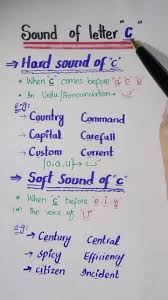 Sound of letter "C"
⇒ Hard sound of "c"
* When "c" comes before "a, o, u"
* In Urdu Pronounciation → "ک"
e.g:
Country Command
Capital Carefull
Custom Current
[o, a, u] → c
⇒ Soft Sound of "c"
* When "c" before e, i, y
the voice of "س"
e.g:
→ Century Central
→ Spicy Efficiency
→ Citizen Incident